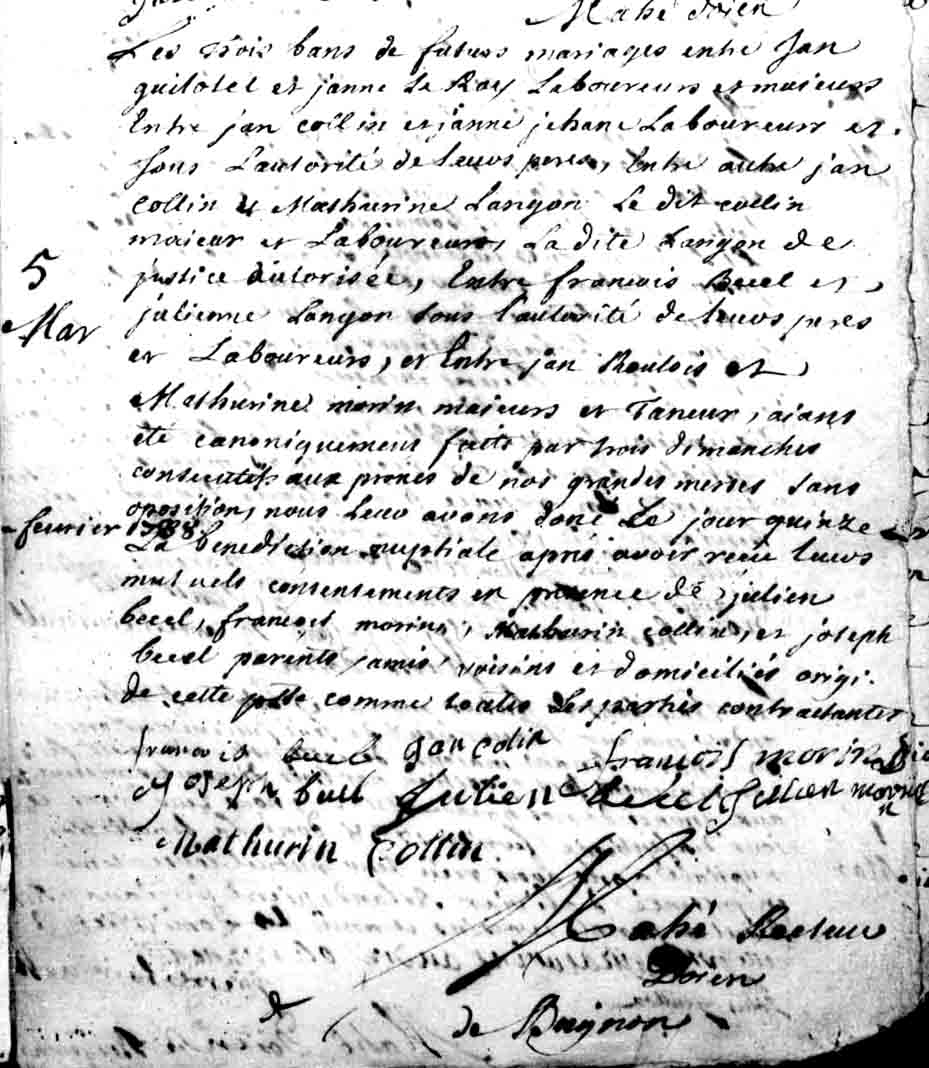 Mahé doien
Les trois bans de futurs mariages entre Jan
guilotel et janne Le Ray Laboureurs et majeurs
Entre jan collin et janne jehane Laboureurs et
sous L'autorité de leurs peres, Entre autre jan
collin & Mathurine Langon Le dit collin
majeur et Laboureurs, La dite Langon de
justice autorisée, Entre francois Becel et
5
julienne Langon sous l'autorité de leurs peres
Mar
et Laboureurs, et Entre jan Roulois et
Mathurine morin majeurs et Taneur, aiant
été canoniquement faits par trois dimanches
consecutifs aux prones de nos grandes messes sans
oposition, nous leur avons doné Le jour quinze
fevrier
La benediction nuptiale aprés avoir recu leurs
mutuels consentements en presence de julien
becel, francois morin, Mathurin collin, et joseph
becel parents, amis, voisins et domiciliés origi.
de cette psse comme toutes Les parties contractantes
francois becel jan colin francois morin
Joseph becel Julien becel morin
Mathurin Collin
Mahé Recteur
Doien
de Buignon